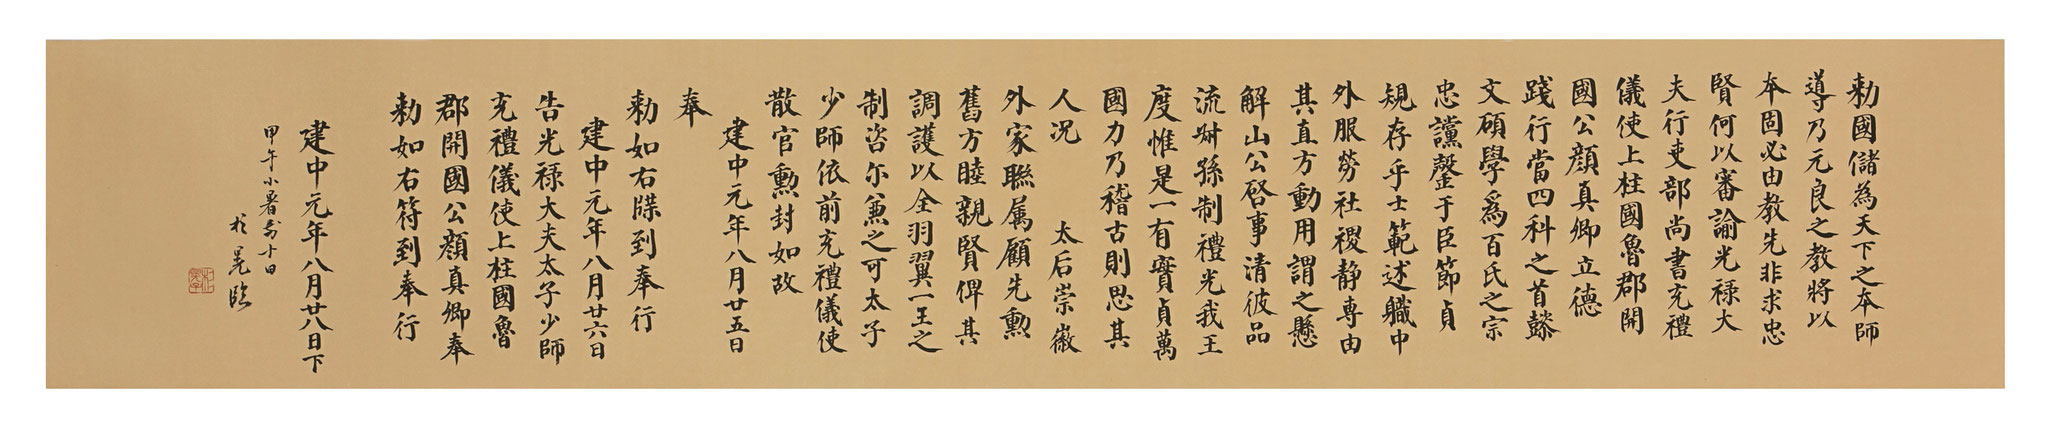 勑國儲為天下之本師
導乃元良之教將以
本固必由教先非求忠
賢何以審諭光祿大
夫行吏部尚書充禮
儀使上柱國魯郡開
國公顏真卿立德
踐行當四科之首懿
文碩學爲百氏之宗
忠讜罄于臣節貞
規存乎士範述職中
外服勞社稷静專由
其直方動用謂之懸
解山公啓事清彼品
流叔孫制禮光我王
度惟是一有實貞萬
國力乃稽古則思其
人况 太后崇徽
外家聯属顧先勲
舊方睦親賢俾其
調護以全羽翼一王之
制咨尓兼之可太子
少師依前充禮儀使
散官勳封如故
建中元年八月廿五日
奉
勑如右牒到奉行
建中元年八月廿六日
告光祿大夫太子少師
充禮儀使上柱國魯
郡開國公顏真卿奉
勑如右符到奉行
建中元年八月廿八日下
甲午小暑前十日
杜晃臨